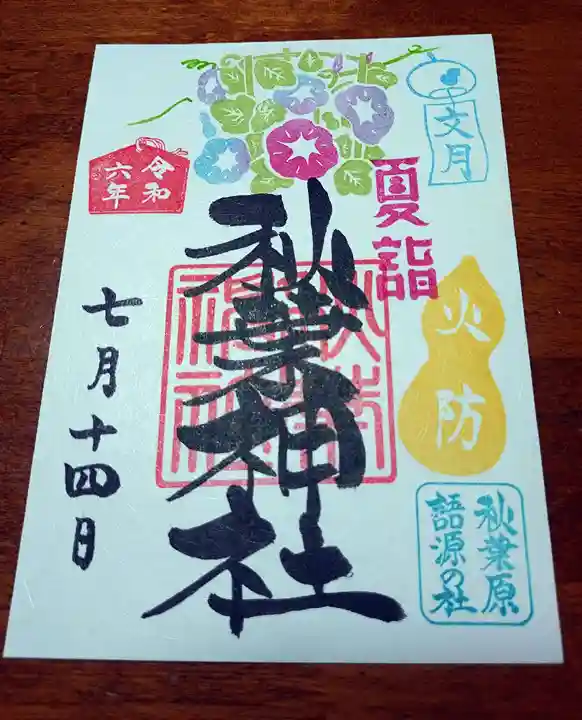 文月
夏詣
火防
秋葉原
語源の社
秋葉神社
令和
六年
七月十四日